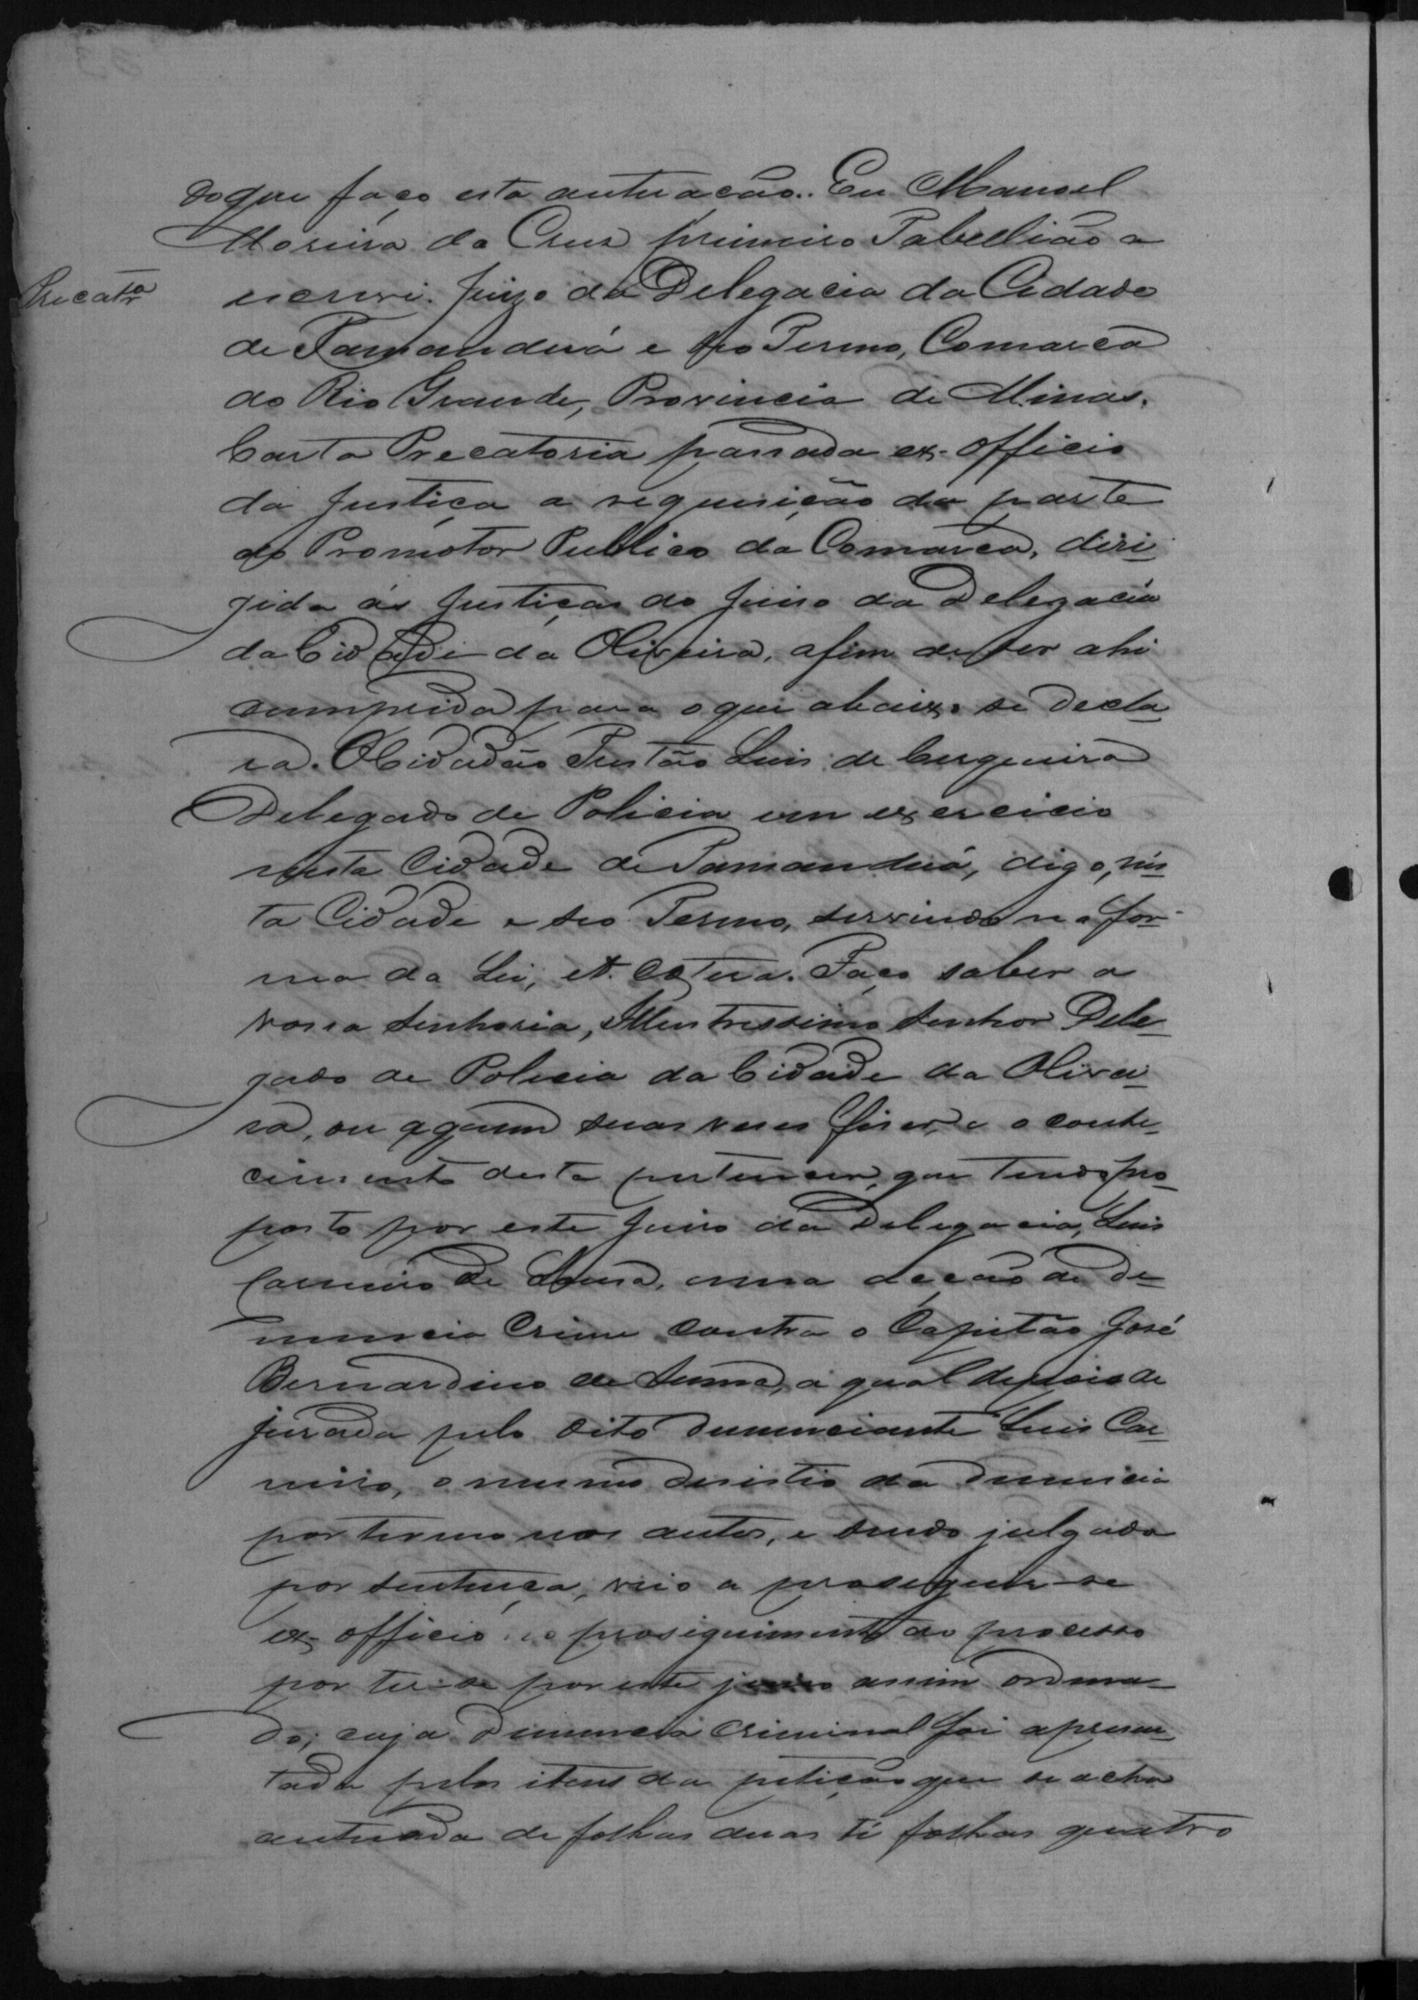 do que faço esta autuacão. Eu Manoel
Moreira da Crus primeiro Tabellião a
Precatra
escrevi. Juizo da Delegacia da Cidade
de Tamanduá e seo Termo, Comarca
do Rio Grande, Provincia de Minas.
Carta Precatoria passada ex-officio
da Justiça a requisição da parte
do Promotor Publico da Comarca, diri-
gida ás Justiças do Juiso da Delegacia
da Cidade da Oliveira, afim de ser ahi
cumprida para o que abaixo se decla-
ra. O Cidadão Tristão Luis de Cerqueira
Delegado de Policia em exercicio
nesta Cidade de Tamanduá, digo, nes-
ta Cidade e seo Termo, servindo na for-
ma da Lei, et Cetera. Faço saber a
vossa senhoria, Illustrissimo senhor Dele-
gado de Policia da Cidade da Olivei-
ra, ou a quem suas veses fiser, e o conhe-
cimento desta pertencer, que tendo pro-
posto por este Juiso da Delegacia, Luis
Carneiro de Sousa, uma acção de de-
nuncia Crime contra o Capitão José
Bernardino de a qual depois de
jurada pelo dito denunciante Luis Car-
neiro, o mesmo desistio da denuncia
por termo nos autos, e sendo julgada
por sentença, veio a proseguir-se
ex-officio no proseguimento do processo
por ter-se por este juiso assim ordena-
do; cuja denuncia criminal foi apresen-
tada pelos itens da petição que se acha
autuada de folhas duas té folhas quatro